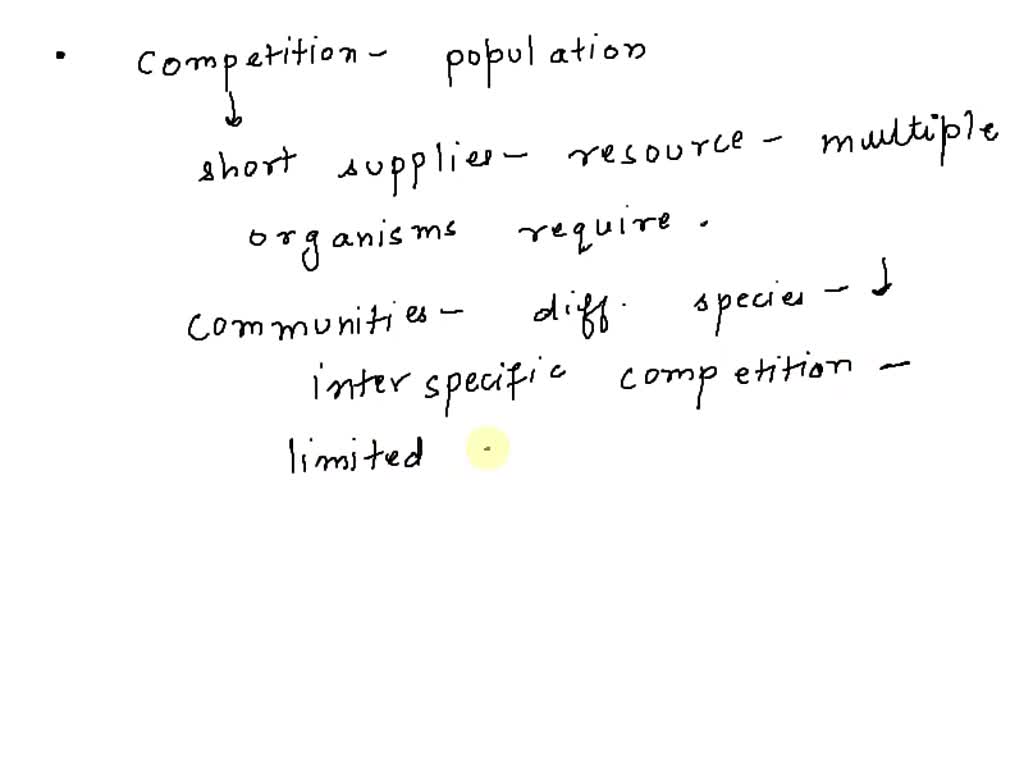 • competition - population
↓
short supplies - resource - multiple
organisms require.
communities - diff. species - ↓
interspecific competition -
limited